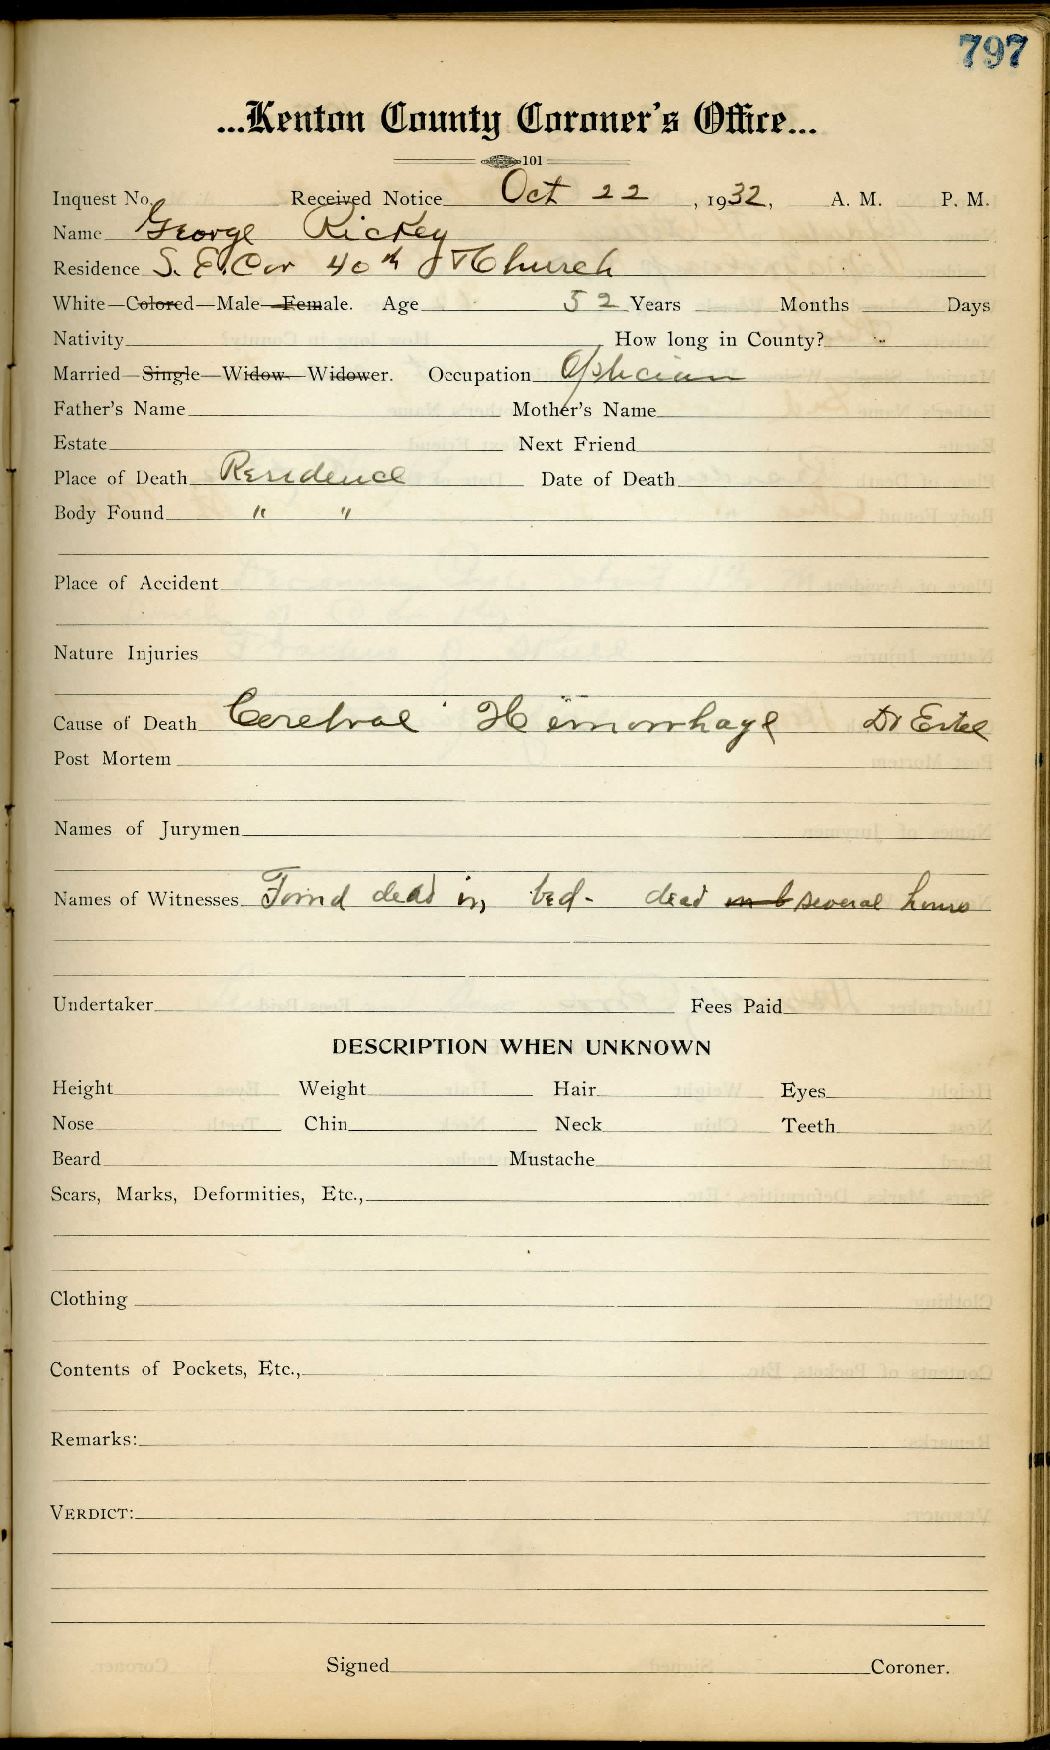 797
...Kenton County Coroner's Office...
101
Inquest No. Received Notice Oct 22, 1932, A. M. P. M.
Name George Rickey
Residence S. E. Cor 40th & Church
White—Colored—Male—Female. Age 52 Years Months Days
Nativity How long in County?
Married—Single—Widow—Widower. Occupation Optician
Father's Name Mother's Name
Estate Next Friend
Place of Death Residence Date of Death
Body Found " "
Place of Accident
Nature Injuries
Cause of Death Cerebral Hemorrhage Dr Ertel
Post Mortem
Names of Jurymen
Names of Witnesses Found dead in bed - dead in b several hours
Undertaker Fees Paid
DESCRIPTION WHEN UNKNOWN
Height Weight Hair Eyes
Nose Chin Neck Teeth
Beard Mustache
Scars, Marks, Deformities, Etc.,
Clothing
Contents of Pockets, Etc.,
Remarks:
VERDICT:
Signed Coroner.